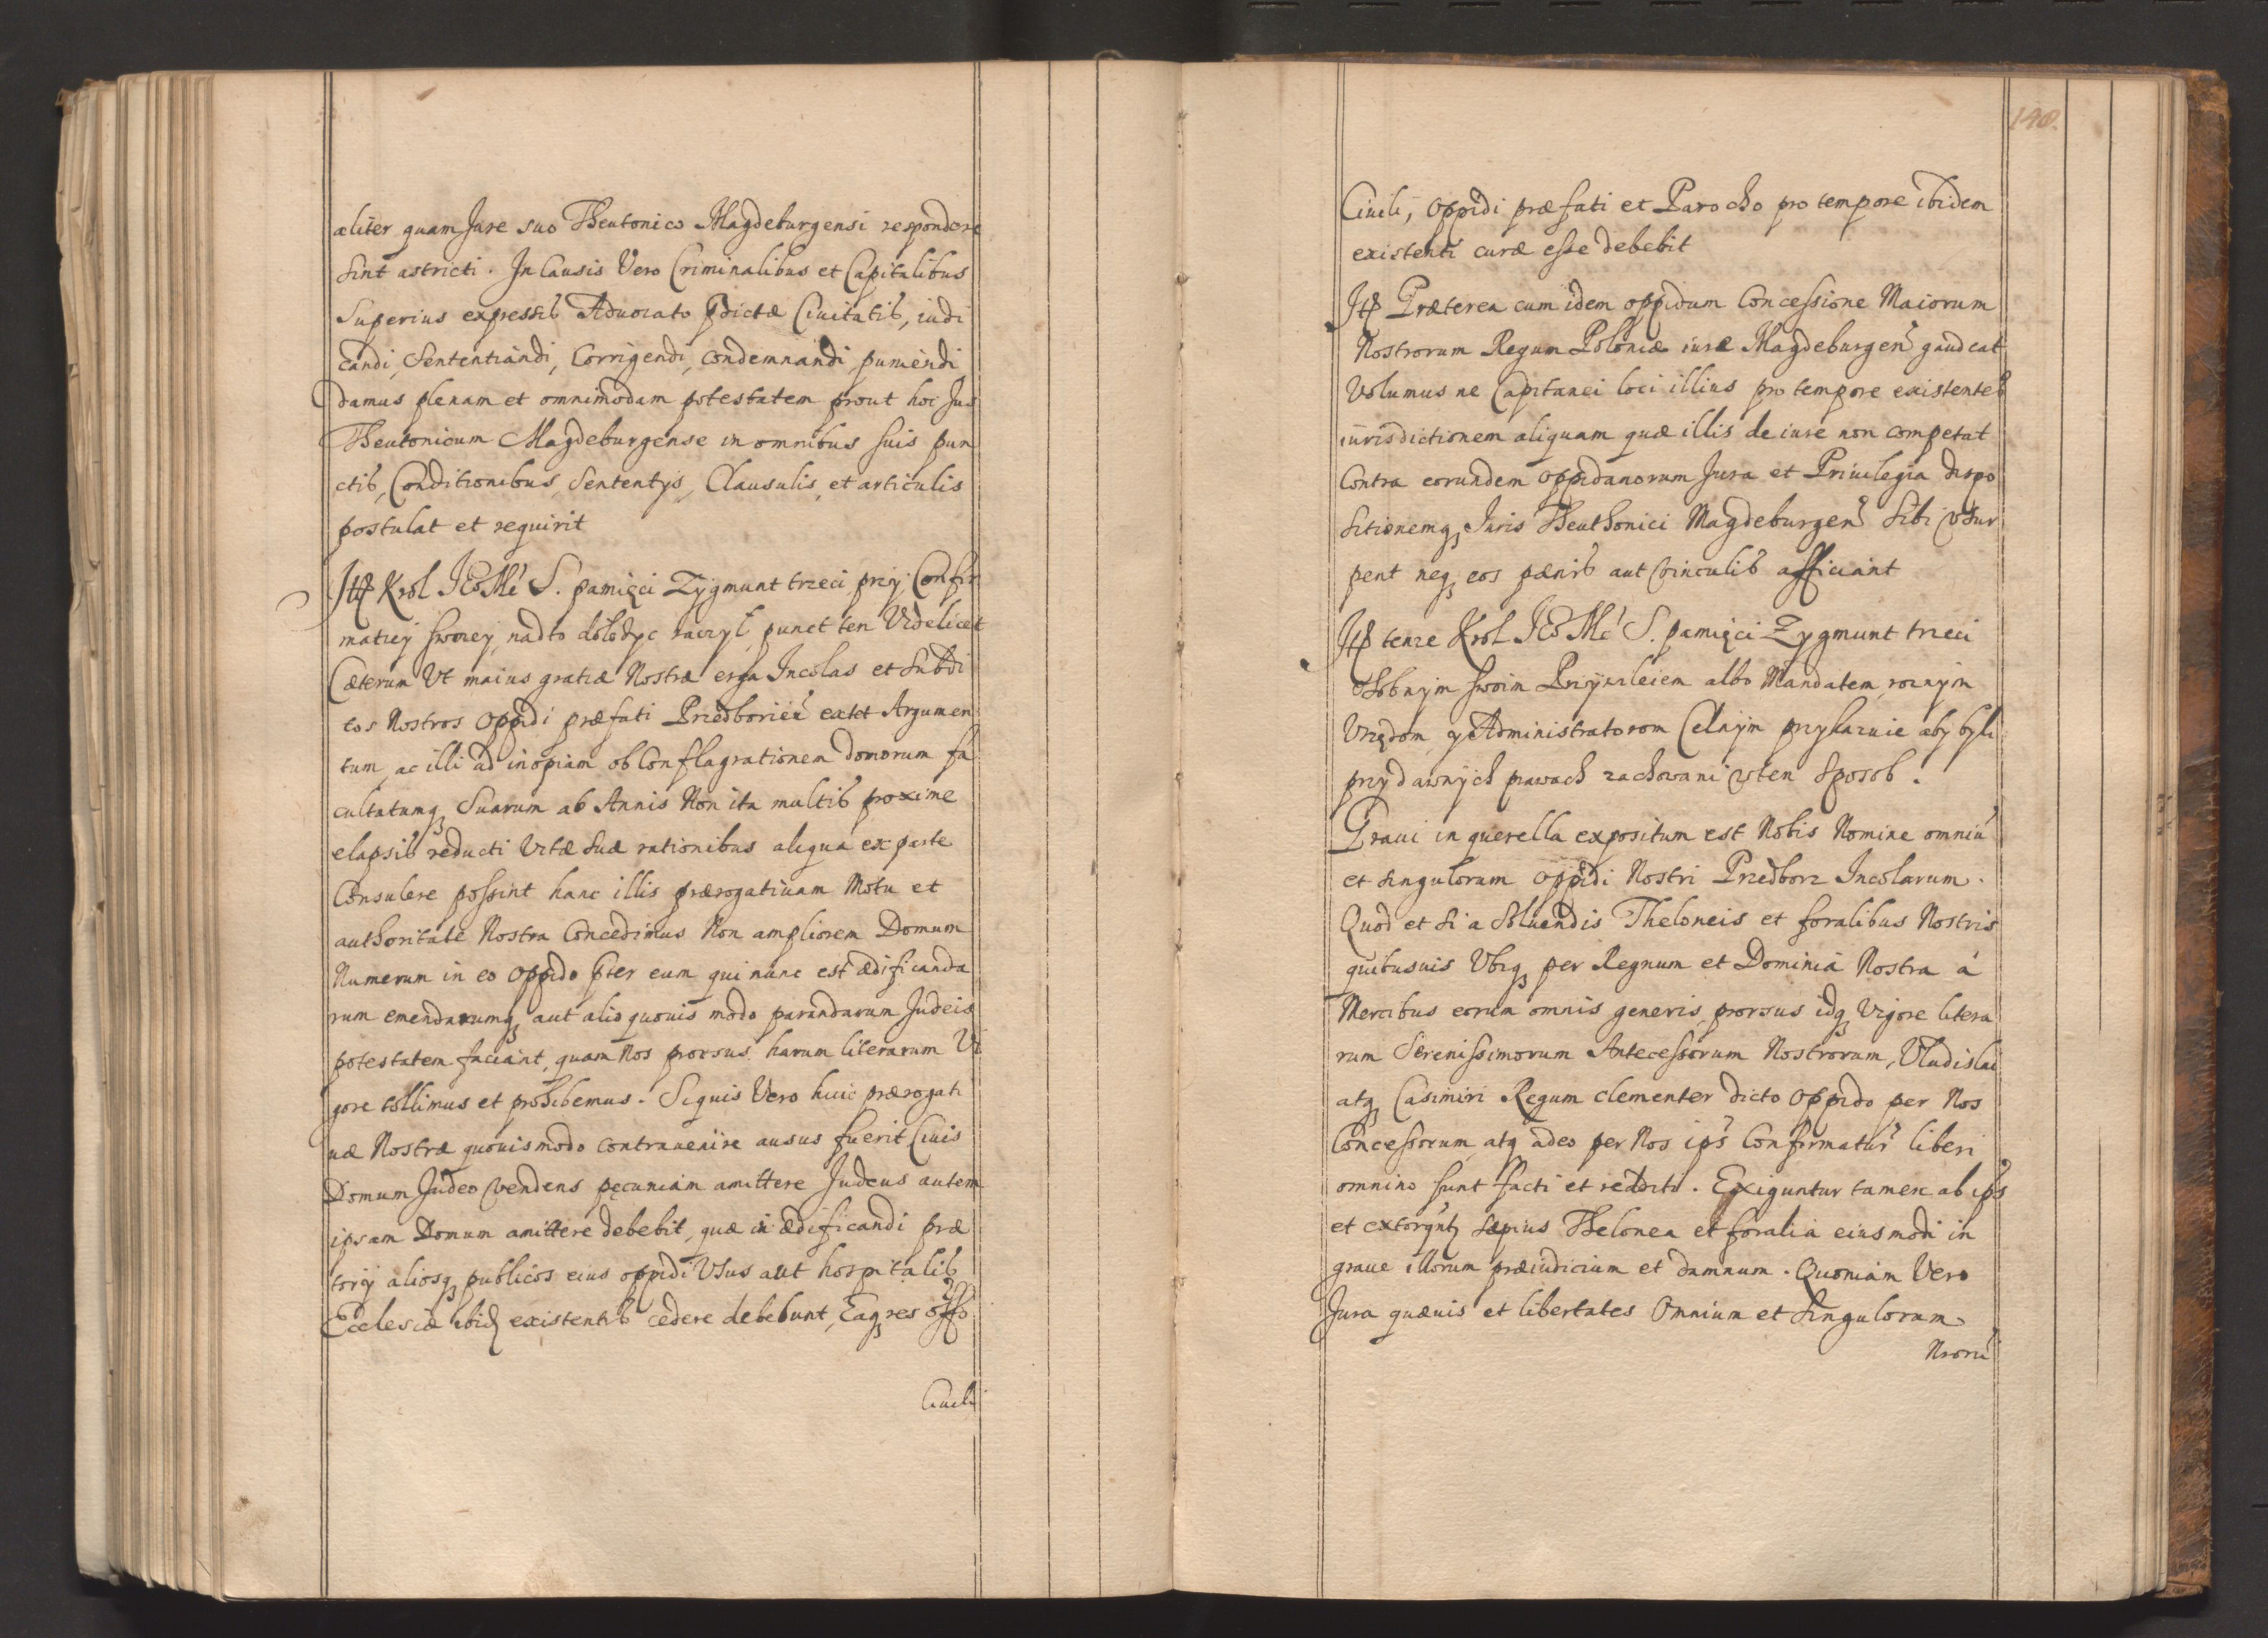 aliter quam Jure suo Theutonico Magdeburgensi respondere
sint astricti. In Causis Vero Criminalibus et Capitalibus
Superius expressis Aduocato pdictæ Ciuitatis, iudi
candi, Sententiandi, Corrigendi, condemnandi, puniendi
damus plenam et omnimodam potestatem prout hoc Jus
Theutonicum Magdeburgense in omnibus suis pun
ctis, Conditionibus, Sententys, Clausulis, et articulis
postulat et requirit
Itē Krol JEo Mć S. pamięci Zygmunt trzeci przy Confir
matiey swoiey, nadto dołożyc raczył, punct ten Videlicet
Cæterum Vt maius gratiæ Nostræ erga Incolas et Subdi
tos Nostros oppidi præfati Przedborien̄ extet Argumen
tum, ac illi ad inopiam ob Conflagrationem domorum fa
cultatumq Suarum ab Annis Non ita multis proxime
elapsis reducti Vitæ Suæ rationibus aliqua ex parte
Consulere possint hanc illis prærogatiuam Motu et
authoritate Nostra Concedimus Non ampliorem Domum
Numerum in eo oppido pter eum qui nunc est ædificanda
rum emendarumq aut alio quouis modo parandarum Judeis
potestatem faciant, quam Nos prorsus harum literarum Vi
gore tollimus et prohibemus. Siquis Vero huic prærogati
uæ Nostræ quouismodo contrauenire ausus fuerit Ciuis
Domum Judeo vendens pecuniam amittere Judeus autem
ipsam Domum amittere debebit, quæ in ædificandi præ
torij aliosq publicos eius oppidi Vsus aut hospitalis
Ecclesiæ ibid existentis cedere debebunt, Eaq res offo
Ciuili
148.
Ciuili, oppidi præfati et Parocho pro tempore ibidem
existenti curæ esse debebit
Itē Præterea cum idem oppidum Concessione Maiorum
Nostrorum Regum Poloniæ iure Magdeburgen̄ gaudeat
Volumus ne Capitanei loci illius pro tempore existentes
iurisdictionem aliquam quæ illis de iure non competat
Contra eorundem oppidanorum Jura et Priuilegia dispo
sitionemq Juris Theuthonici Magdeburgen̄ sibi vsur
pent neq eos pænis aut vinculis afficiant
Itē tenze Krol JEo Mć S. pamięci Zygmunt trzeci
osobnÿm swoim Przÿwileiem albo Mandatem, roznÿm
Vrzędom, y Administratorom Celnÿm przykazuie aby byli
przy dawnÿch prawach zachowani w ten sposob.
Graui in querella expositum est Nobis Nomine omniū
et singulorum oppidi Nostri Przedborz Incolarum.
Quod et si a Soluendis Theloneis et foralibus Nostris
quibusuis Vbiq per Regnum et Dominia Nostra á
Mercibus eorum omnis generis, prorsus idq Vigore litera
rum Serenissimorum Antecessorum Nostrorum, Vladislai
atq Casimiri Regum clementer dicto oppido per Nos
Concessorum, atq adeo per Nos ips̄ Confirmatur̄ liberi
omnino sunt facti et redditi. Exiguntur tamen ab ips̄
et extorqntʒ sæpius Thelonea et foralia eiusmodi in
graue illorum præiudicium et damnum. Quoniam Vero
Jura quæuis et libertates Omnium et Singulorum
Nrorū